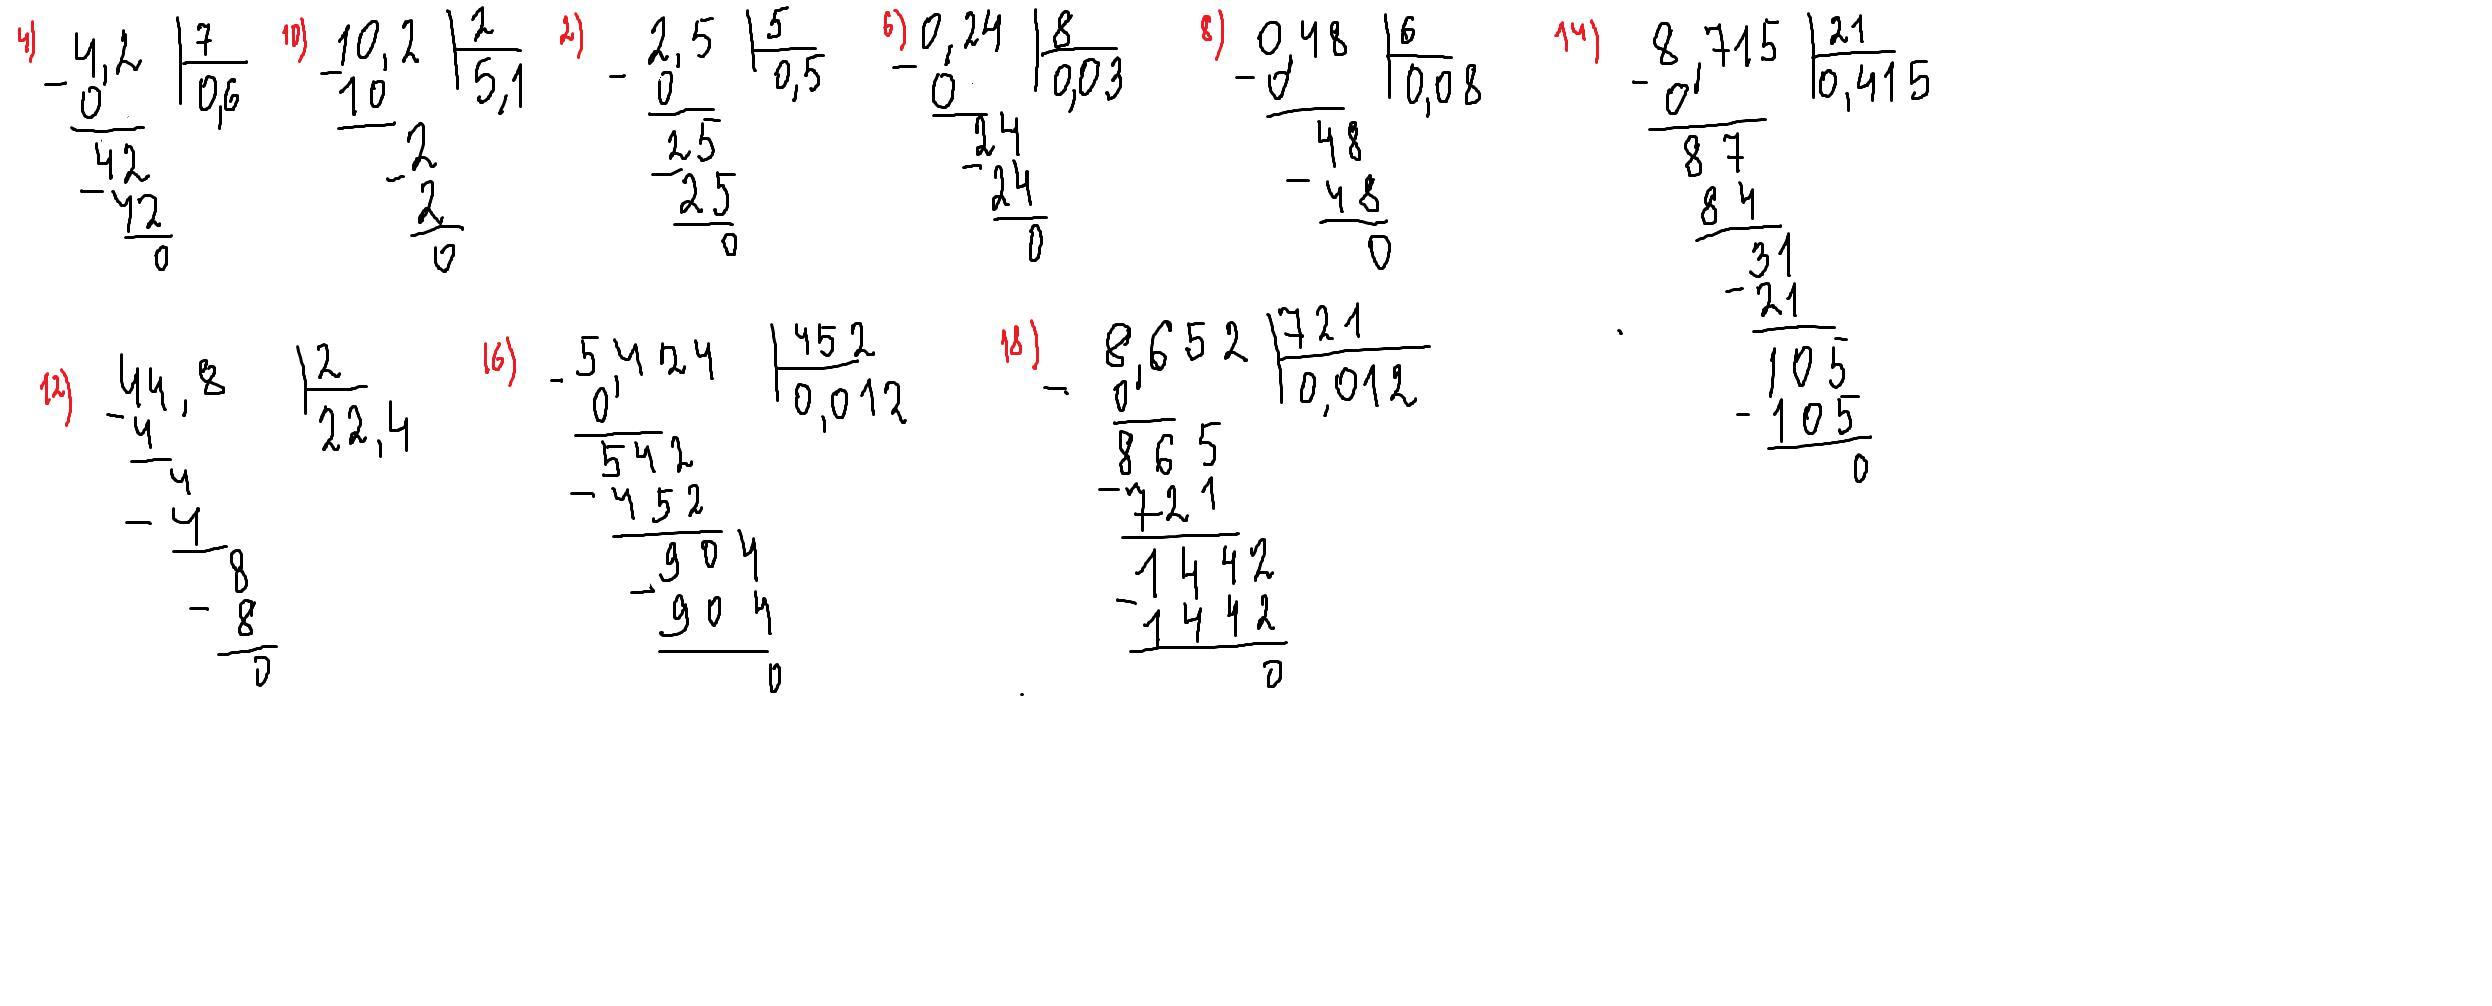 4) 4,2 | 7
- 0 | 0,6
42
- 42
0
10) 10,2 | 2
- 10 | 5,1
2
- 2
0
2) 2,5 | 5
- 0 | 0,5
25
- 25
0
6) 0,24 | 8
- 0 | 0,03
24
- 24
0
8) 0,48 | 6
- 0 | 0,08
48
- 48
0
14) 8,715 | 21
- 0 | 0,415
87
84
31
- 21
105
- 105
0
12) 44,8 | 2
- 4 | 22,4
4
- 4
8
- 8
0
16) 5,424 | 452
- 0 | 0,012
542
- 452
904
- 904
0
18) 8,652 | 721
- 0 | 0,012
865
- 721
1442
- 1442
0